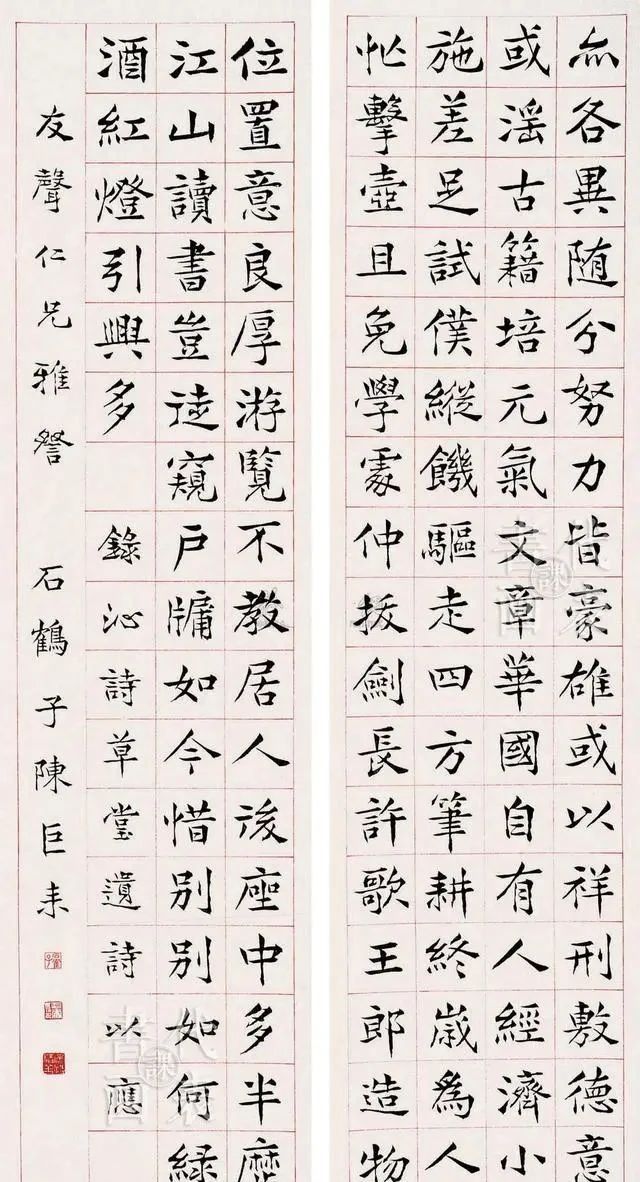 亦各異随分努力皆豪雄或以祥刑敷德意
或滛古籍培元氣文章華國自有人經濟小
施差足試僕縱饑驅走四方筆耕終歲為人
忙擊壺且免學處仲拔劍長許歌王郎造物
位置意良厚游覽不教居人後座中多半歷
江山讀書豈徒窺戶牖如今惜別別如何緑
酒紅燈引興多 錄沁詩草堂遺詩以應
友聲仁兄雅詧 石鶴子陳巨来